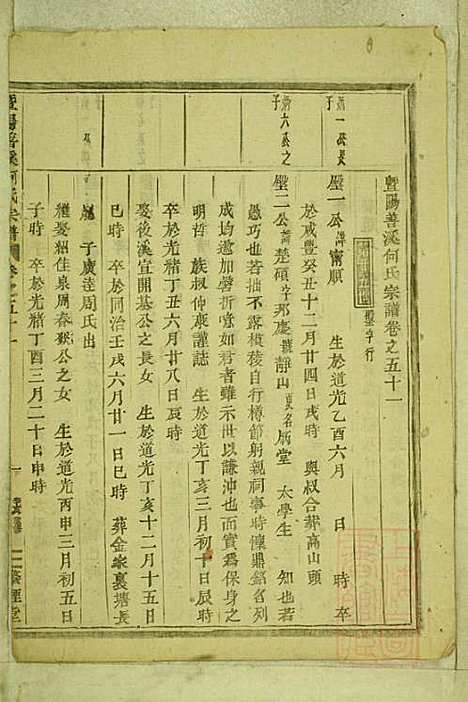 暨陽善溪何氏宗譜卷之五十一
壁字行
壁一公諱甯順 生於道光乙酉六月 日 時卒
於咸豐癸丑十二月廿四日戌時 與叔合葬高山頭
壁二公諱楚碩字那慶號靜山更名炳堂 太學生 知也若
愚巧也若拙不露模稜自行樽節躬親祠事時懷鼎銘名列
成均邀加聲折喰如君者雖示世以謙沖也而實爲保身之
明哲 族叔仲康謹誌 生於道光丁亥三月初十日辰時
卒於光緒丁丑六月廿八日辰時
娶後溪宣開基公之長女 生於道光丁亥十二月十五日
巳時 卒於同治壬戌六月廿一日巳時 葬金家裏塘長
子廣達周氏出
繼娶紹佳泉周春公之女 生於道光丙申三月初五日
子時 卒於光緒丁酉三月二十日申時
第一公長
子
第六公之
子
暨陽善溪何氏宗譜
卷之五十一
一